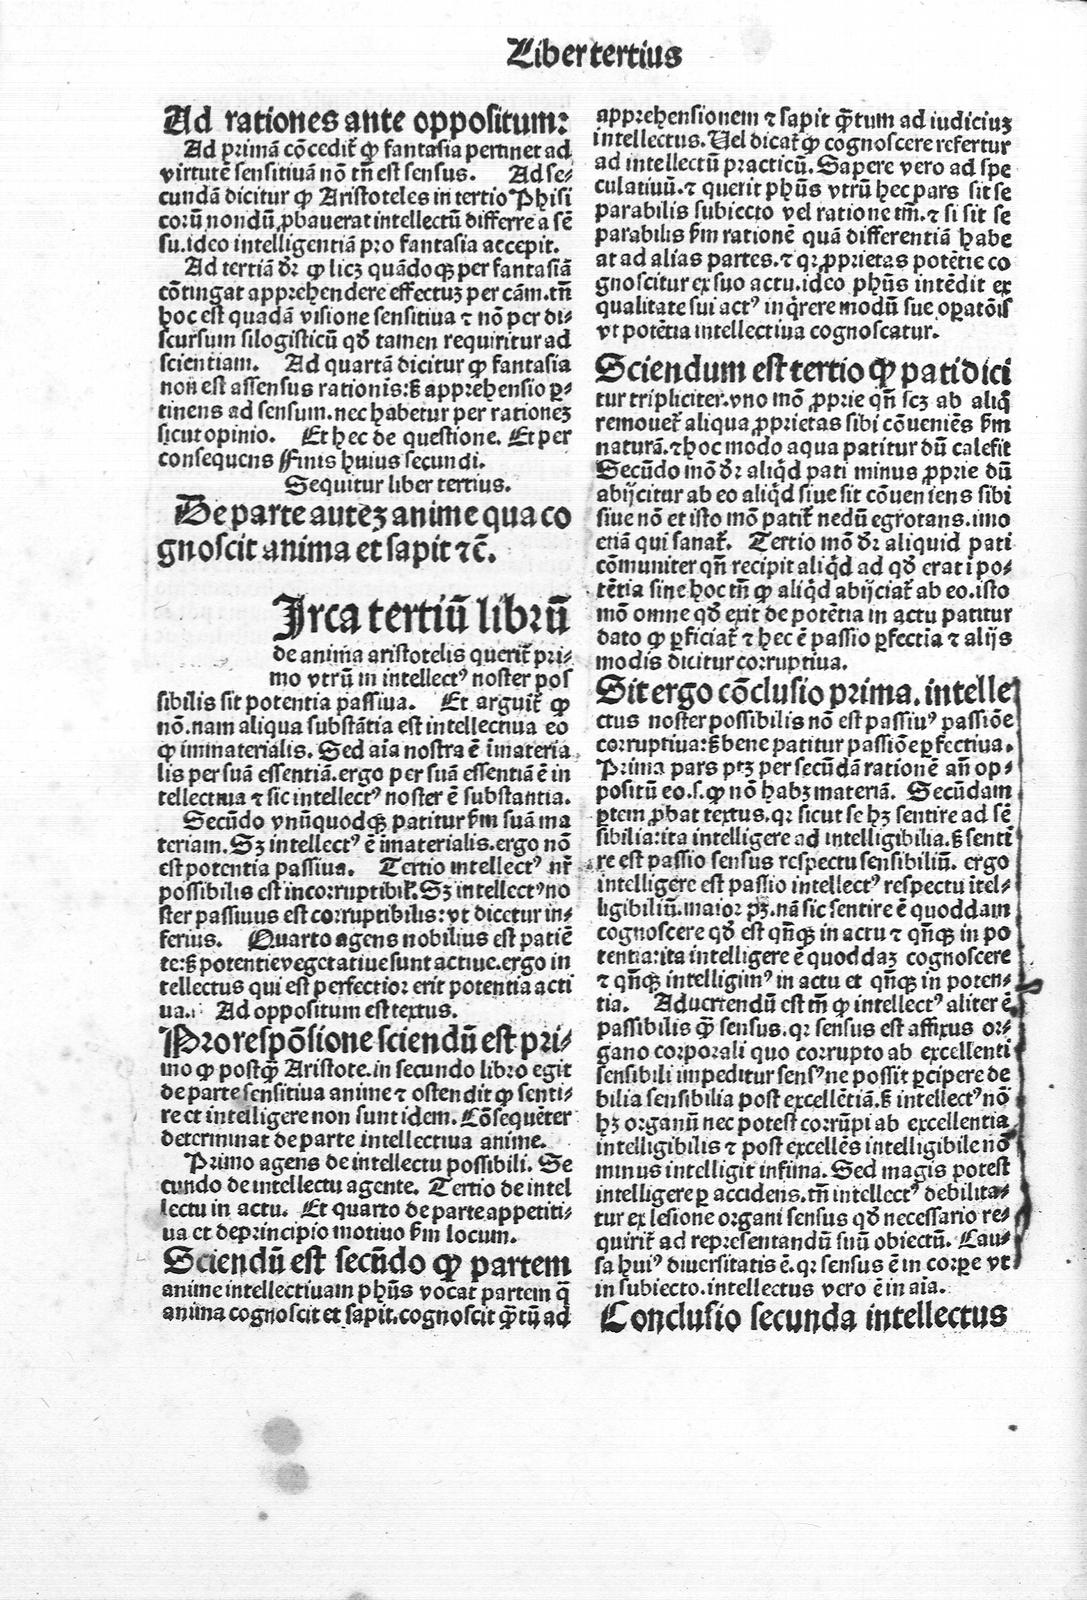 Liber tertius
Ad rationes ante oppositum:
Ad primã cõcedit̃ ꝙ fantasia pertinet ad
virtutẽ sensitiuã nõ tñ est sensus. Ad se⸗
cundã dicitur ꝙ Aristoteles in tertio Phisi
corũ nondũ ꝓbauerat intellectũ differre a sẽ
su. ideo intelligentiã pro fantasia accepit.
Ad tertiã dr̃ ꝙ licꝫ quãdoqꝫ per fantasiã
cõtingat apprehendere effectuꝫ per cãm. tñ
hoc est quadã visione sensitiua ⁊ nõ per di⸗
scursum silogisticũ qđ tamen requiritur ad
scientiam. Ad quartã dicitur ꝙ fantasia
non est assensus rationis: sꝫ apprehensio ꝑ⸗
tinens ad sensum. nec habetur per rationeꝫ
sicut opinio. Et hec de questione. Et per
consequens Finis huius secundi.
Sequitur liber tertius.
De parte auteꝫ anime qua co
gnoscit anima et sapit ⁊c̃.
Irca tertiũ librũ
de anima aristotelis querit̃ pri⸗
mo vtrũ in intellectꝰ noster pos
sibilis sit potentia passiua. Et arguit̃ ꝙ
nõ. nam aliqua substãtia est intellectiua eo
ꝙ immaterialis. Sed aĩa nostra ẽ ĩmateria
lis per suã essentiã. ergo per suã essentiã ẽ in
tellectiua ⁊ sic intellectꝰ noster ẽ substantia.
Secũdo vnũquodqꝫ patitur ẜm suã ma
teriam. Sꝫ intellectꝰ ẽ imaterialis. ergo nõ
est potentia passiua. Tertio intellectꝰ nr̃
possibilis est incorruptibiľ. Sꝫ intellectꝰ no
ster passiuus est corruptibilis: vt dicetur in⸗
ferius. Quarto agens nobilius est patiẽ
te: sꝫ potentie vegetatiue sunt actiue. ergo in
tellectus qui est perfectior erit potentia acti
ua. Ad oppositum est textus.
Pro respõsione sciendũ est pri⸗
mo ꝙ postꝙ̃ Aristote. in secundo libro egit
de parte sensitiua anime ⁊ ostendit ꝙ senti⸗
re et intelligere non sunt idem. Cõsequẽter
determinat de parte intellectiua anime.
Primo agens de intellectu possibili. Se
cundo de intellectu agente. Tertio de intel
lectu in actu. Et quarto de parte appetiti⸗
ua et de principio motiuo ẜm locum.
Sciendũ est secũdo ꝙ partem
anime intellectiuam phũs vocat partem q̃
anima cognoscit et sapit. cognoscit ꝙ̃tũ ad
apprehensionem ⁊ sapit ꝙ̃tum ad iudiciuꝫ
intellectus. Uel dicat̃ ꝙ cognoscere refertur
ad intellectũ practicũ. Sapere vero ad spe
culatiuũ. ⁊ querit phũs vtrũ hec pars sit se
parabilis subiecto vel ratione tm̃. ⁊ si sit se
parabilis ẜm rationẽ quã differentiã habe
at ad alias partes. ⁊ qꝛ ꝓprietas potẽtie co
gnoscitur ex suo actu. ideo phũs intẽdit ex
qualitate sui actꝰ inq̃rere modũ sue oꝑatõis
vt potẽtia intellectiua cognoscatur.
Sciendum est tertio ꝙ pati dici
tur tripliciter. vno mõ ꝓprie qñ scꝫ ab aliq̃
remouet̃ aliqua ꝓprietas sibi cõueniẽs ẜm
naturã. ⁊ hoc modo aqua patitur dũ calefit
Secũdo mõ dr̃ aliq̃d pati minus ꝓprie dũ
abijcitur ab eo aliq̃d siue sit cõueniens sibi
siue nõ et isto mõ patit̃ nedũ egrotans. imo
etiã qui sanat̃. Tertio mõ dr̃ aliquid pati
cõmuniter qñ recipit aliq̃d ad qđ erat i po⸗
tẽtia sine hoc tñ ꝙ aliq̃d abijciat̃ ab eo. isto
mõ omne qđ exit de potẽtia in actu patitur
dato ꝙ ꝑficiat̃ ⁊ hec ẽ passio ꝑfectia ⁊ alijs
modis dicitur corruptiua.
Sit ergo cõclusio prima. intelle
ctus noster possibilis nõ est passiuꝰ passiõe
corruptiua: sꝫ bene patitur passiõe ꝑfectiua.
Prima pars ptꝫ per secũdã rationẽ añ op⸗
positũ eo. s. ꝙ nõ habꝫ materiã. Secũdam
ꝑtem ꝓbat textus. qꝛ sicut se hꝫ sentire ad sẽ
sibilia: ita intelligere ad intelligibilia. sꝫ senti
re est passio sensus respectu sensibiliũ. ergo
intelligere est passio intellectꝰ respectu itel⸗
ligibiliũ. maior pꝫ. nã sic sentire ẽ quoddam
cognoscere qđ est qñqꝫ in actu ⁊ qñqꝫ in po
tentia: ita intelligere ẽ quoddaꝫ cognoscere
⁊ qñqꝫ intelligimꝰ in actu et qñqꝫ in poten⸗
tia. Aduertendũ est tñ ꝙ intellectꝰ aliter ẽ
passibilis ꝙ̃ sensus. qꝛ sensus est affixus or⸗
gano corporali quo corrupto ab excellenti
sensibili impeditur sensꝰ ne possit ꝑcipere de
bilia sensibilia post excellẽtiã. sꝫ intellectꝰ nõ
hꝫ organũ nec potest corrũpi ab excellentia
intelligibilis ⁊ post excellẽs intelligibile nõ
minus intelligit infima. Sed magis potest
intelligere ꝑ accidens. tñ intellectꝰ debilita⸗
tur ex lesione organi sensus qđ necessario re⸗
quirit̃ ad representandũ suũ obiectũ. Cau⸗
sa huiꝰ diuersitatis ẽ. qꝛ sensus ẽ in corꝑe vt
in subiecto. intellectus vero ẽ in aĩa.
Conclusio secunda intellectus